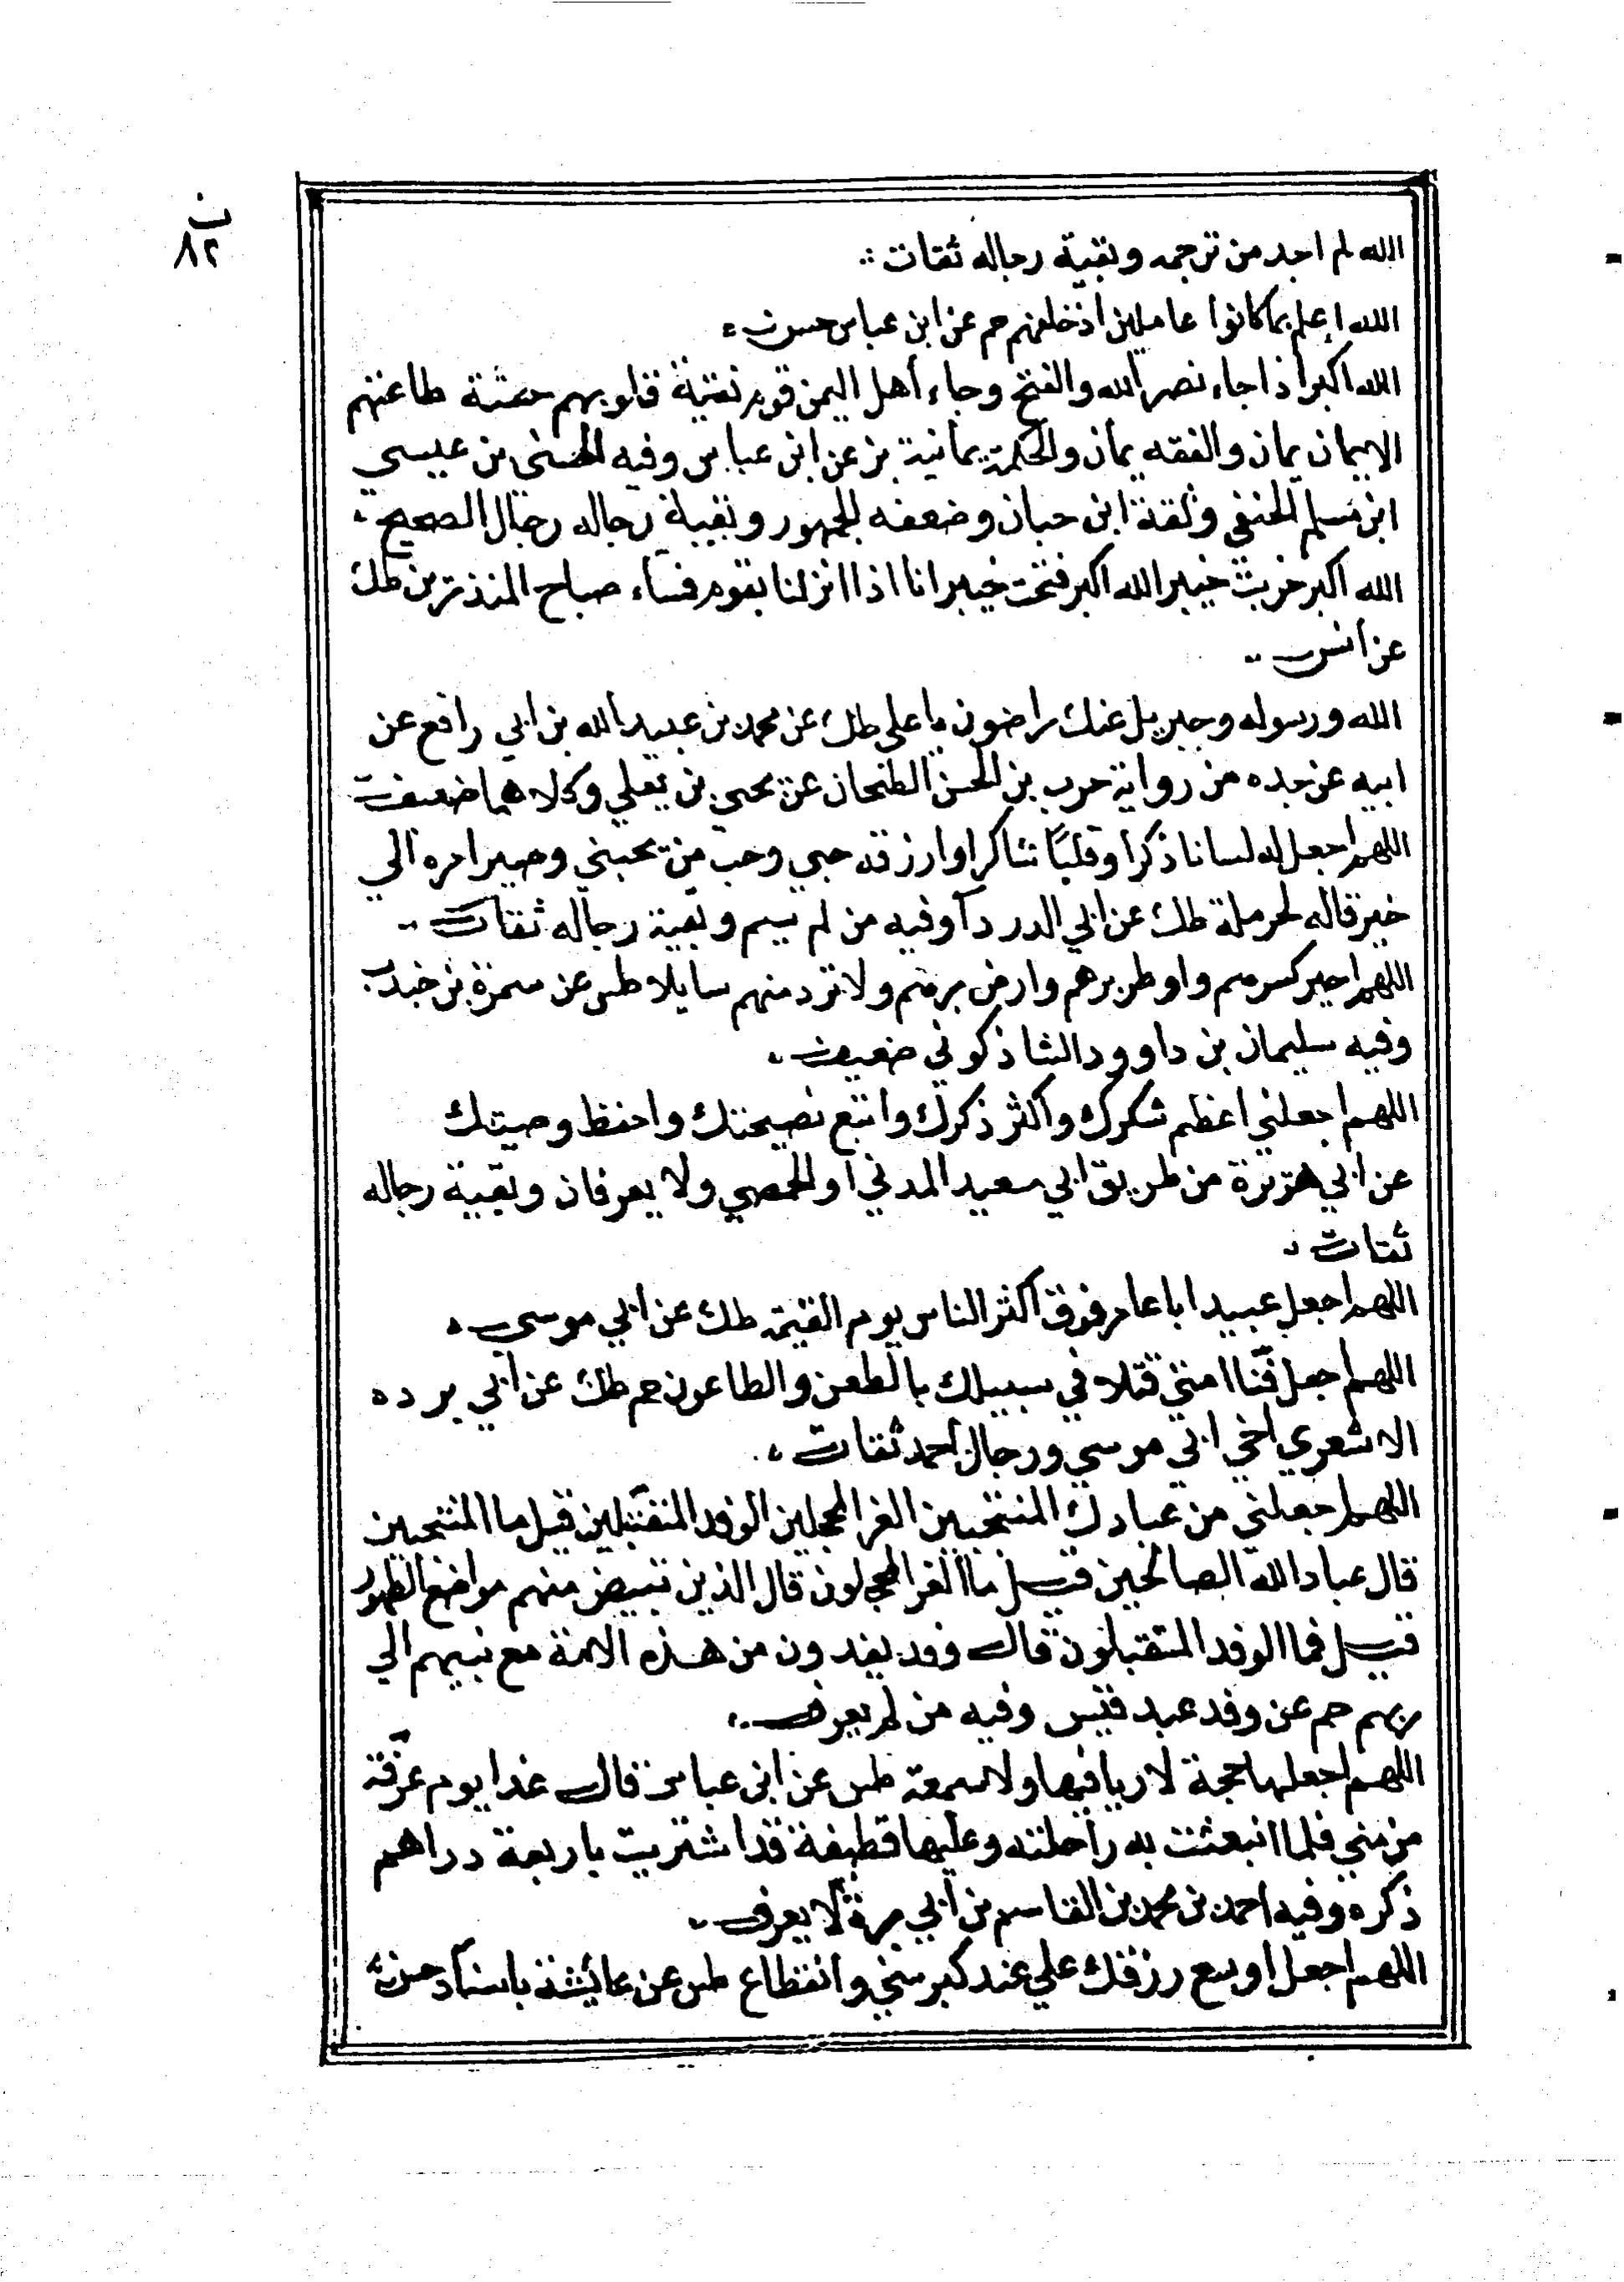 ن
٨٢
الله لم اجد من ترجمه وبقية رجاله ثقات ..
الله اعلم بما كانوا عاملين اذ خلقهم حم عن ابن عباس حسن
الله اكبر اذا جاء نصر الله والفتح وجاء أهل اليمن قوم نقية قلوبهم حسنة طاعتهم
الايمان يمان والفقه يمان والحكمة يمانية بز عن ابن عباس وفيه الحسن بن عيسي
ابن مسلم الحنفي وثقة ابن حبان وضعفه الجمهور وبقية رجاله رجال الصحيح
الله اكبر خربت خيبر الله اكبر فتحت خيبر انا اذا انزلنا بقوم فساء صباح المنذرين طك
عن انس
الله ورسوله وجبريل عنك راضون يا علي طك عن محمد بن عبيد الله بن ابي رافع عن
ابيه عن جده من رواية حرب بن الحسن الطحان عن يحي بن يعلي وكلاهما ضعيف
اللهم اجعل له لسانا ذكرا وقلبًا شاكرا وارزقه حبي وحب من يحبني وصير امره الي
خير قاله لحرملة طك عن ابي الدردآ وفيه من لم يسم وبقية رجاله ثقات
اللهم اجبر كسرهم واوطن برهم وارض برمتم ولا ترد منهم سايلا طس عن سمرة بن جندب
وفيه سليمان بن داوود الشاذكوني ضعيف
اللهم اجعلني اعظم شكرك واكثر ذكرك واتبع نصيحتك واحفظ وصيتك
عن ابي هريرة من طريق ابي سعيد المدني او الحمصي ولا يعرفان وبقية رجاله
ثقات
اللهم اجعل عبيدا ابا عامر فوق اكثر الناس يوم القيمة طك عن ابي موسي
اللهم اجعل فنا امتي قتلا في سبيلك بالطعن والطاعون حم طك عن ابي برده
الاشعري اخي ابي موسي ورجال احمد ثقات
اللهم اجعلني من عبادك المنتجبين الغر المحجلين الوفد المتقبلين قيل ما المنتجبين
قال عباد الله الصالحين قيل ما الغر المحجلون قال الذين تبيض منهم مواضع الطهور
قيل فما الوفد المتقبلون قال وفد يفدون من هذه الامة مع نبيهم الي
ربهم حم عن وفد عبد قيس وفيه من لم يعرف
اللهم اجعلها حجة لا ريا فيها ولا سمعة طس عن ابن عباس قال غدا يوم عرفة
من مني فلما انبعثت به راحلته وعليها قطيفة قد اشتريت باربعة دراهم
ذكره وفيه احمد بن محمد بن القاسم بن ابي برة لا يعرف
اللهم اجعل اوسع رزقك علي عند كبر سني وانقطاع طس عن عائشة باسناد حسن